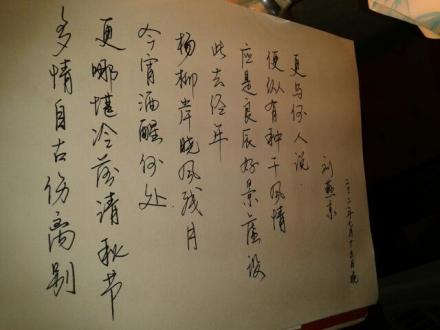 多情自古伤离别
更哪堪冷落清秋节
今宵酒醒何处
杨柳岸晓风残月
此去经年
应是良辰好景虚设
便纵有种千风情
更与何人说
刘燕京
二〇一二年 月十五日晚